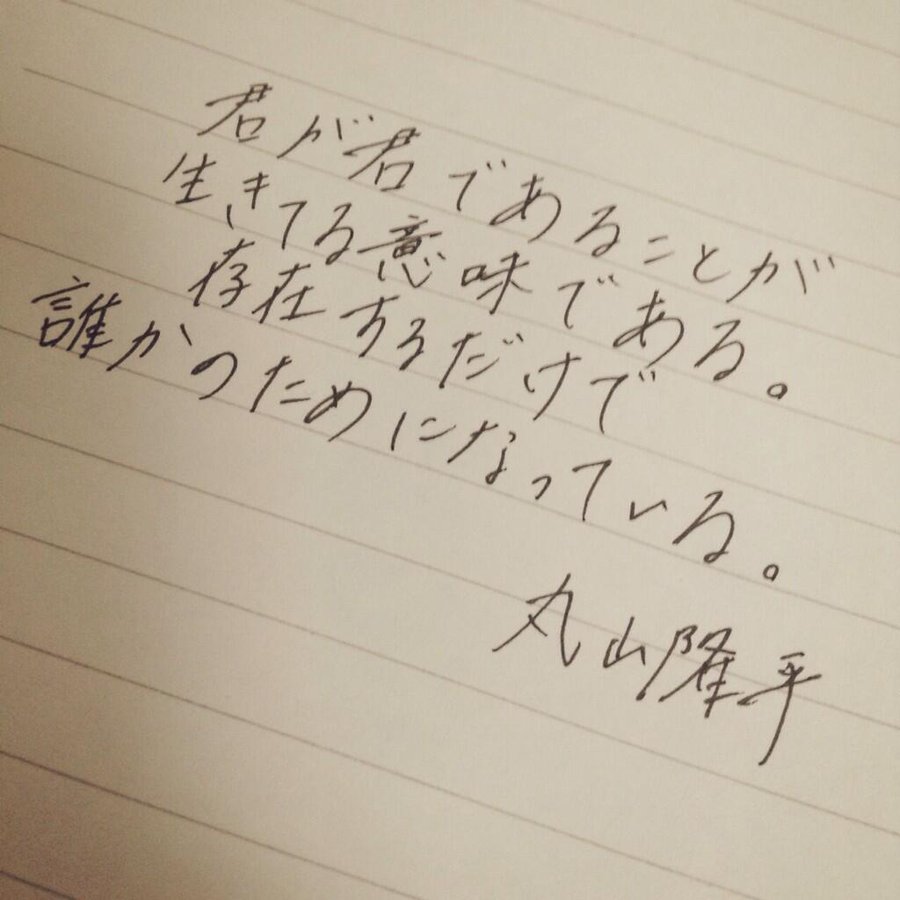 君が君であることが
生きてる意味である。
存在するだけで
誰かのためになっている。
丸山隆平